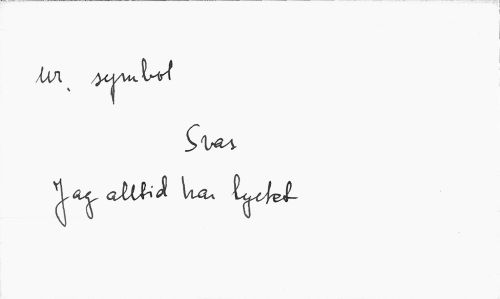 ur. symbol
Svar
Jag alltid har lyckat